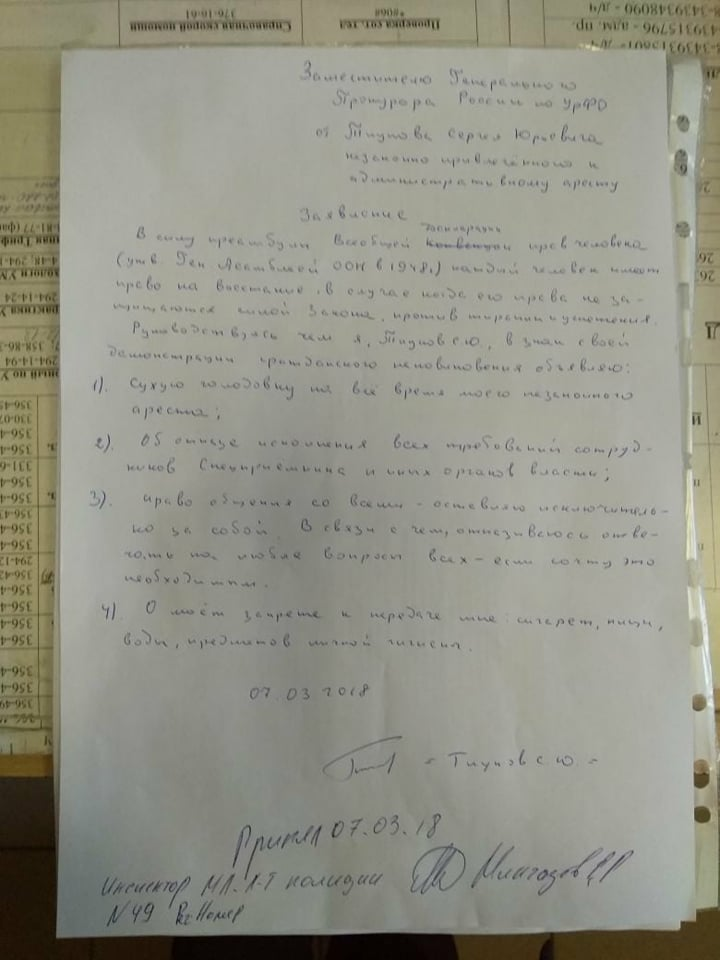 376-16-61
Справочная скорой помощи
*8068
Проверка сот. тел
Заместителю Генерального
Прокурора России по УрФО
от Тиунова Сергея Юрьевича
незаконно привлечённого к
административному аресту
Заявление
В силу преамбулы Всеобщей декларации прав человека
(утв. Ген. Ассамблеей ООН в 1948г.) каждый человек имеет
право на восстание, в случае когда его права не за-
щищаются силой Закона, против тирании и угнетения.
Руководствуясь чем я, Тиунов С.Ю., в знак своей
демонстрации гражданского неповиновения объявляю:
1). Сухую голодовку на всё время моего незаконного
ареста;
2). Об отказе исполнения всех требований сотруд-
ников Спецприёмника и иных органов власти;
3). право общения со всеми - оставляю исключитель-
но за собой. В связи с чем, отказываюсь отве-
чать на любые вопросы всех - если сочту это
необходимым.
4). О моём запрете к передаче мне: сигарет, пищи,
воды, предметов личной гигиены.
07.03 2018
- Тиунов С.Ю. -
Принял 07.03.18
Инспектор мл. л-т полиции
N 49